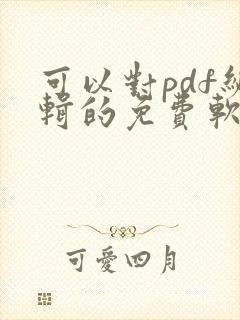 可以對pdf編
輯的免費軟
可愛四月